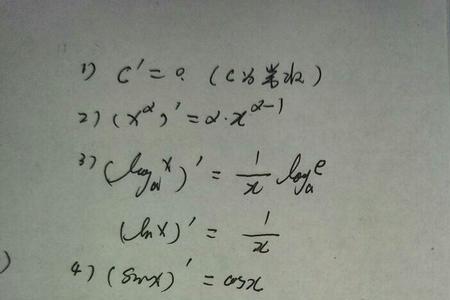 1) C' = 0. (C为常数)
2) (x^α)' = α·x^(α-1)
3) (log_a x)' = 1/x log_a e
(ln x)' = 1/x
)
4) (sinx)' = cosx